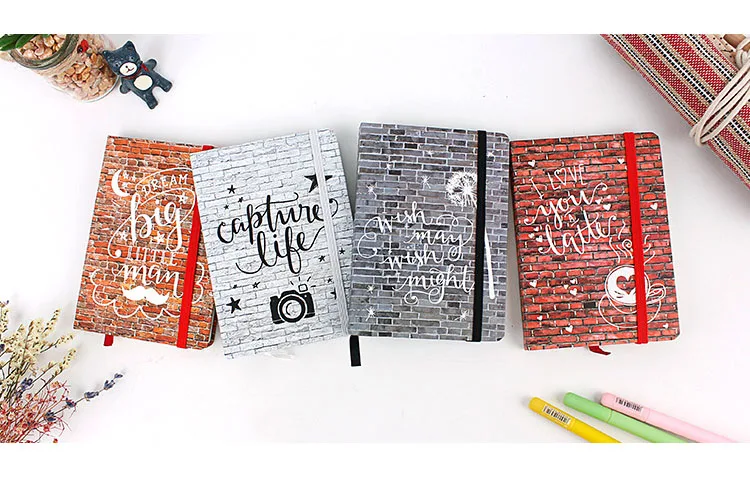 DREAM
big
LITTLE
man
capture
life
wish
may
wish
might
I LOVE
you
a
latte